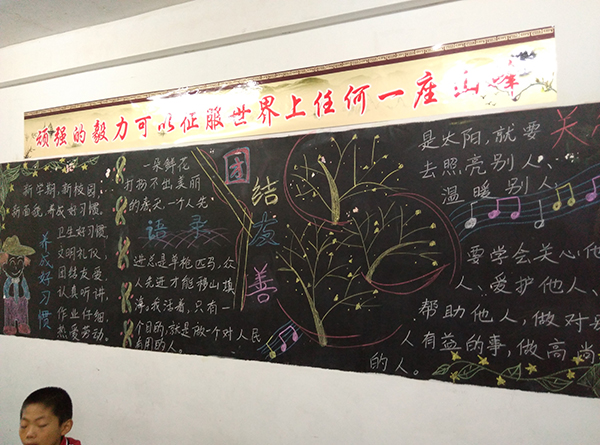 顽强的毅力可以征服世界上任何一座山峰
新学期,新校园,
新面貌,养成好习惯。
卫生好习惯,
文明礼仪,
团结友爱,
认真听讲,
作业仔细,
热爱劳动。
养成好习惯
一朵鲜花
打扮不出美丽
的春天,一个人先
语录
进总是单枪匹马,众
人先进才能移山填
海。我活着,只有一
个目的,就是做一个对人民
有用的人。
团结友善
是太阳,就要
去照亮别人、
温暖别人
关
要学会关心他
人、爱护他人、
帮助他人,做对
人有益的事,做高尚
的人。